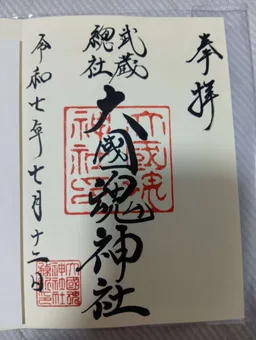 奉拝
武蔵
總社
大國魂神社
令和七年七月十二日
大國魂
神社印
大國魂
神社